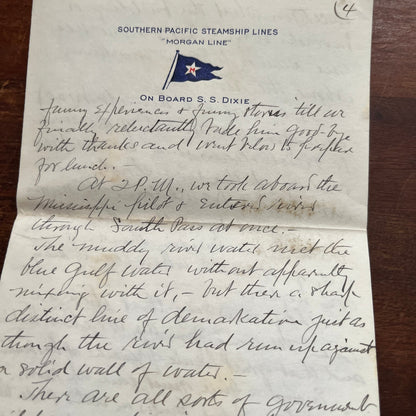 4
SOUTHERN PACIFIC STEAMSHIP LINES
"MORGAN LINE"
ON BOARD S. S. DIXIE
funny experiences & funny stories 'till we
finally reluctantly bade him good-bye
with thanks and went below to prepare
for lunch. -
At 2 P.M., we took aboard the
Mississippi pilot & entered river
through South Pass at once. -
The muddy river water met the
blue Gulf water without apparently
mixing with it, - but then a sharp
distinct line of demarkation just as
though the river had run up against
a solid wall of water. -
There are all sorts of goverment